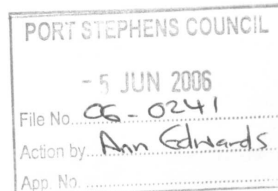 PORT STEPHENS COUNCIL
- 5 JUN 2006
File No. 06-0241
Action by Ann Edwards
App. No.